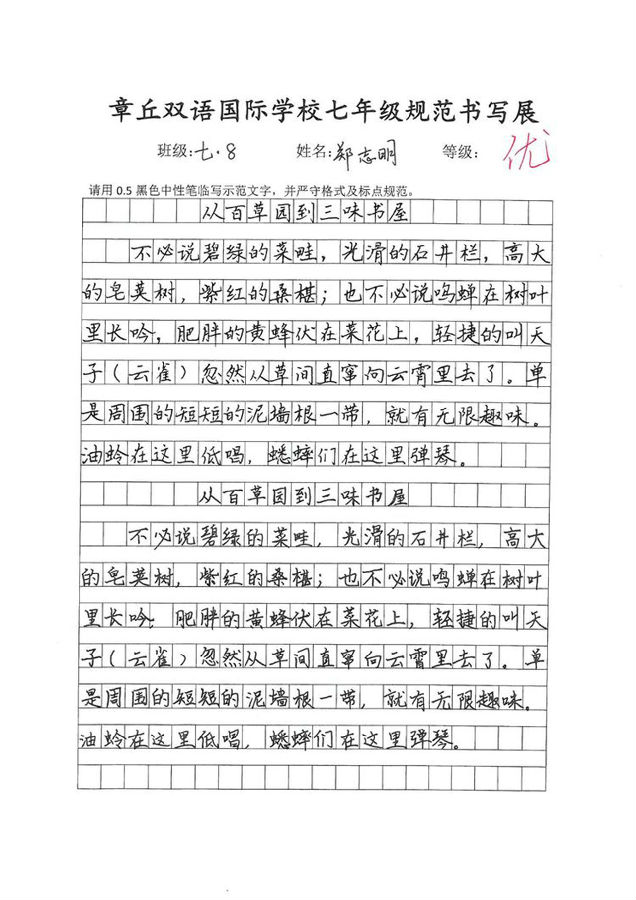 章丘双语国际学校七年级规范书写展
班级:七·8 姓名:郑志明 等级: 优
请用 0.5 黑色中性笔临写示范文字，并严守格式及标点规范。
从百草园到三味书屋
不必说碧绿的菜畦，光滑的石井栏，高大
的皂荚树，紫红的桑椹；也不必说鸣蝉在树叶
里长吟，肥胖的黄蜂伏在菜花上，轻捷的叫天
子（云雀）忽然从草间直窜向云霄里去了。单
是周围的短短的泥墙根一带，就有无限趣味。
油蛉在这里低唱，蟋蟀们在这里弹琴。
从百草园到三味书屋
不必说碧绿的菜畦，光滑的石井栏，高大
的皂荚树，紫红的桑椹；也不必说鸣蝉在树叶
里长吟，肥胖的黄蜂伏在菜花上，轻捷的叫天
子（云雀）忽然从草间直窜向云霄里去了。单
是周围的短短的泥墙根一带，就有无限趣味。
油蛉在这里低唱，蟋蟀们在这里弹琴。